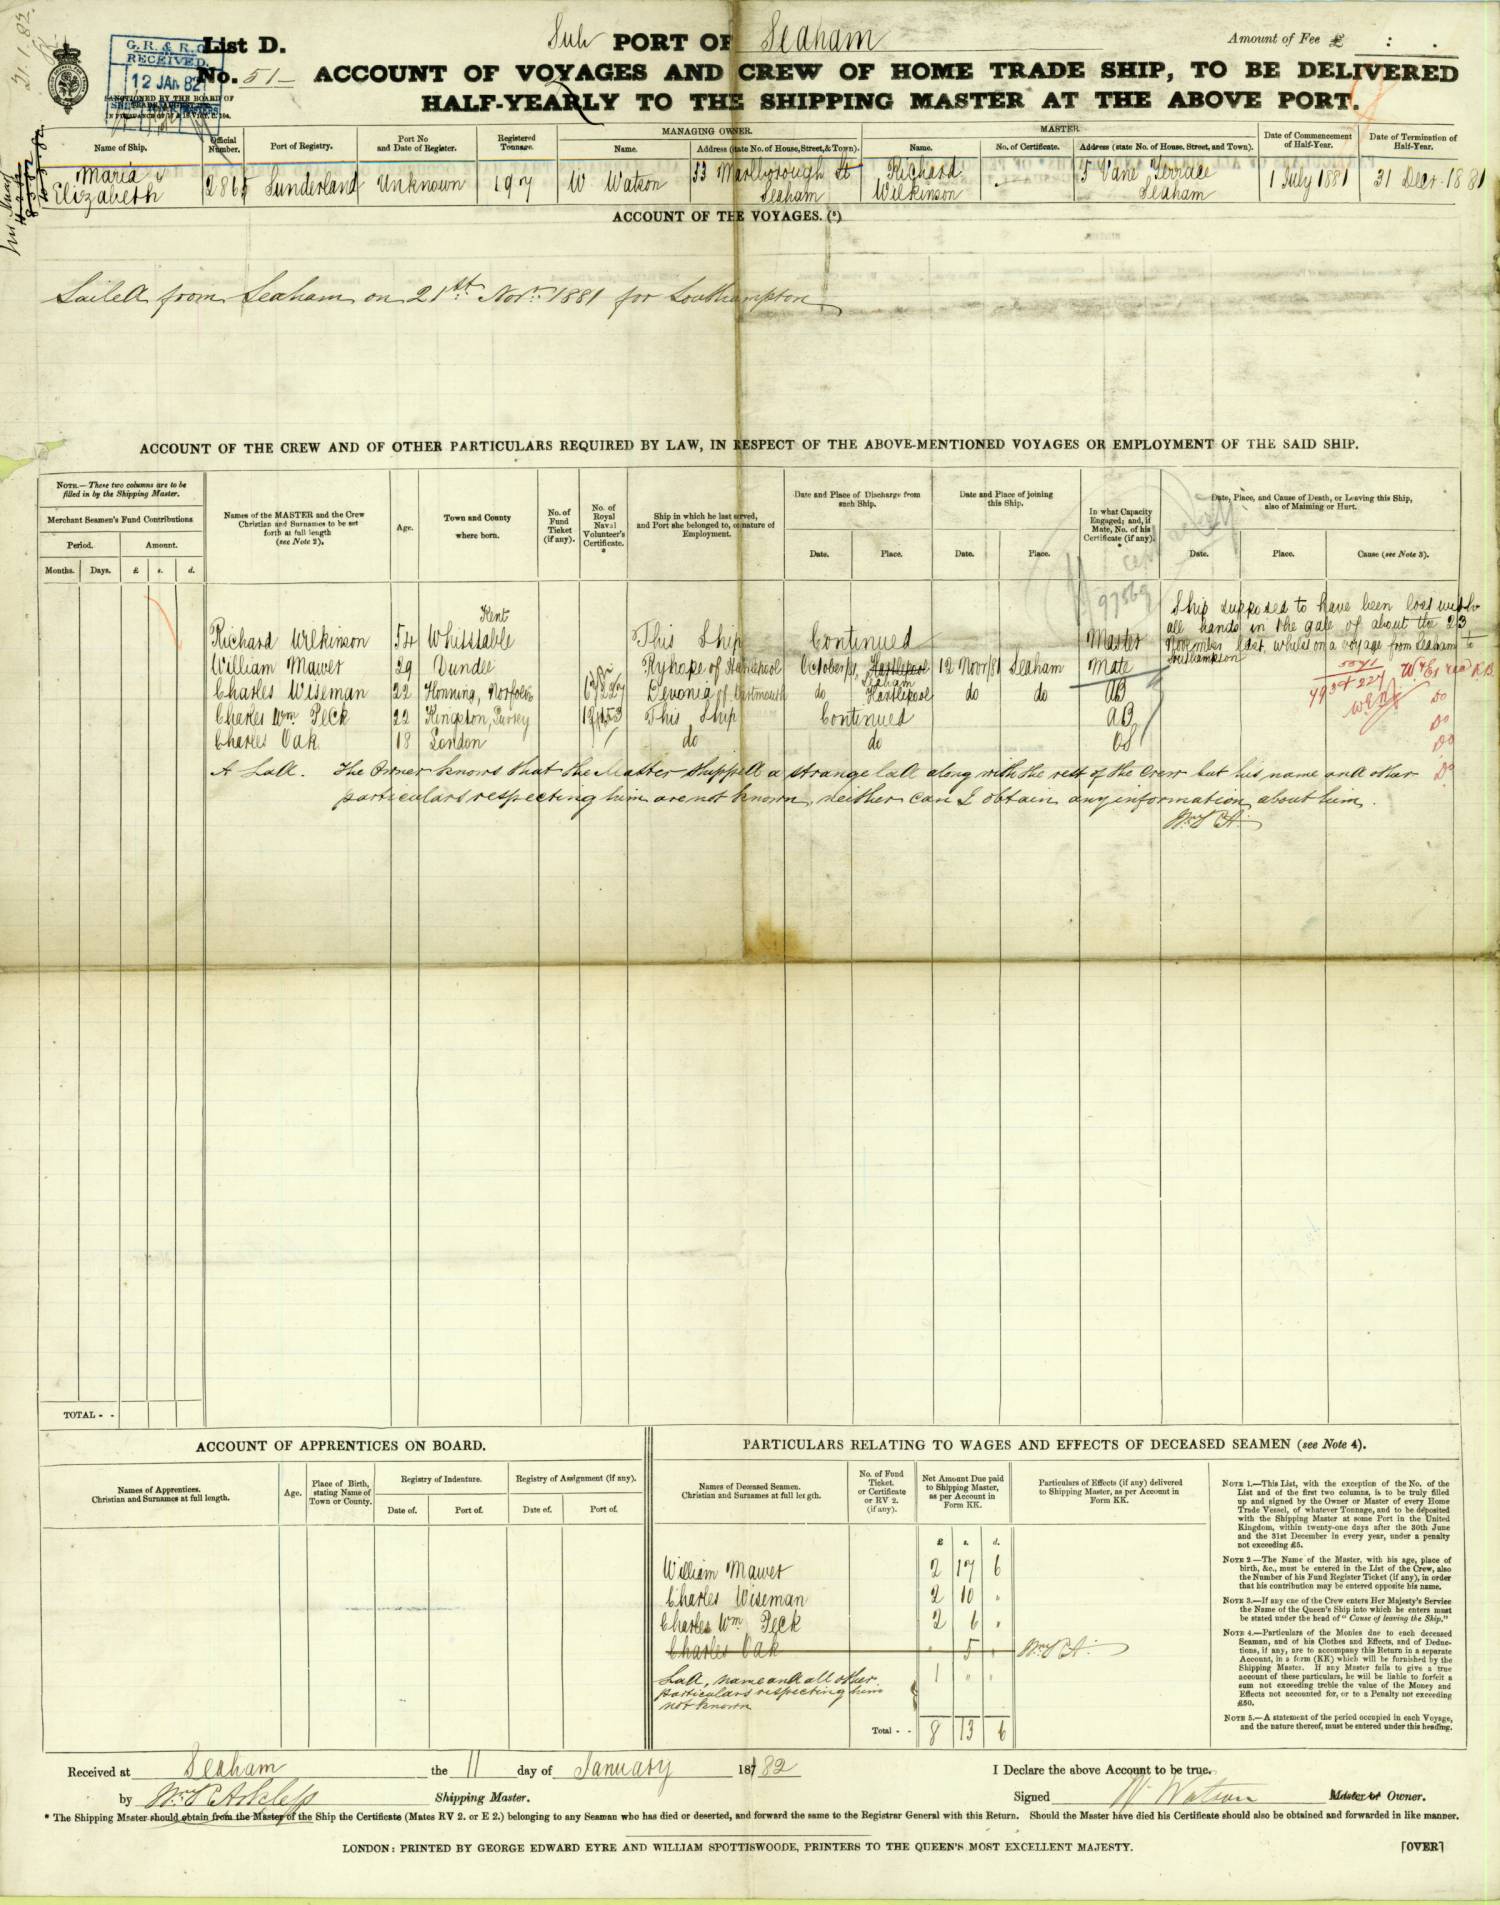 21.1.82
G. R. & R. O.
RECEIVED.
12 JAN 82
List D.
No. 51
SANCTIONED BY THE BOARD OF
Sub PORT OF Seaham
Amount of Fee £ : .
ACCOUNT OF VOYAGES AND CREW OF HOME TRADE SHIP, TO BE DELIVERED
HALF-YEARLY TO THE SHIPPING MASTER AT THE ABOVE PORT.
Name of Ship.
Official Number.
Port of Registry.
Port No and Date of Register.
Registered Tonnage.
MANAGING OWNER.
Name.
Address (state No. of House, Street, & Town).
MASTER.
Name.
No. of Certificate.
Address (state No. of House, Street, and Town).
Date of Commencement of Half-Year.
Date of Termination of Half-Year.
Maria &
Elizabeth
2865
Sunderland
Unknown
197
W Watson
53 Marlborough St
Seaham
Richard
Wilkinson
5 Vane Terrace
Seaham
1 July 1881
31 Decr. 1881
ACCOUNT OF THE VOYAGES. (5)
Sailed from Seaham on 21st Novr. 1881 for Southampton
ACCOUNT OF THE CREW AND OF OTHER PARTICULARS REQUIRED BY LAW, IN RESPECT OF THE ABOVE-MENTIONED VOYAGES OR EMPLOYMENT OF THE SAID SHIP.
NOTE.—These two columns are to be
filled in by the Shipping Master.
Merchant Seamen's Fund Contributions
Period.
Amount.
Months.
Days.
£
s.
d.
Names of the MASTER and the Crew
Christian and Surnames to be set
forth at full length
(see Note 2).
Age.
Town and County
where born.
No. of
Fund
Ticket
(if any).
No. of
Royal
Naval
Volunteer's
Certificate.
*
Ship in which he last served,
and Port she belonged to, or nature of
Employment.
Date and Place of Discharge from
such Ship.
Date.
Place.
Date and Place of joining
this Ship.
Date.
Place.
In what Capacity
Engaged; and, if
Mate, No. of his
Certificate (if any).
*
Date, Place, and Cause of Death, or Leaving this Ship,
also of Maiming or Hurt.
Date.
Place.
Cause (see Note 3).
97569
Richard Wilkinson 54 Kent Whitstable This Ship Continued Master
Ship supposed to have been lost with
all hands in the gale of about the 23
November last, whilst on a voyage from Seaham to
Southampton
William Mawer 29 Dundee Ryhope of Hartlepool October/81 Hartlepool Seaham 12 Novr/81 Seaham Mate
Charles Wiseman 22 Honning, Norfolk Devonia of Dartmouth do Hartlepool do do AB
Charles Wm Peck 22 Kingston, Surrey This Ship Continued AB
Charles Oak. 18 London do do OS
Do
Do
Do
Do
A Lad. The Owner knows that the Master shipped a strange lad along with the rest of the Crew but his name and other
particulars respecting him are not known, neither can I obtain any information about him.
TOTAL - -
ACCOUNT OF APPRENTICES ON BOARD.
Names of Apprentices.
Christian and Surnames at full length.
Age.
Place of Birth,
stating Name of
Town or County.
Registry of Indenture.
Date of.
Port of.
Registry of Assignment (if any).
Date of.
Port of.
PARTICULARS RELATING TO WAGES AND EFFECTS OF DECEASED SEAMEN (see Note 4).
Names of Deceased Seamen.
Christian and Surnames at full length.
No. of Fund
Ticket.
or Certificate
or RV 2.
(if any).
Net Amount Due paid
to Shipping Master,
as per Account in
Form KK.
Particulars of Effects (if any) delivered
to Shipping Master, as per Account in
Form KK.
£ s. d.
William Mawer 2 17 6
Charles Wiseman 2 10 "
Charles Wm Peck 2 6 "
Charles Oak " 5 "
Lad, name and all other
particulars respecting him
not known
1 " "
Total - - 8 13 6
NOTE 1.—This List, with the exception of the No. of the
List and of the first two columns, is to be truly filled
up and signed by the Owner or Master of every Home
Trade Vessel, of whatever Tonnage, and to be deposited
with the Shipping Master at some Port in the United
Kingdom, within twenty-one days after the 30th June
and the 31st December in every year, under a penalty
not exceeding £5.
NOTE 2—The Name of the Master, with his age, place of
birth, &c., must be entered in the List of the Crew, also
the Number of his Fund Register Ticket (if any), in order
that his contribution may be entered opposite his name.
NOTE 3.—If any one of the Crew enters Her Majesty's Service
the Name of the Queen's Ship into which he enters must
be stated under the head of "Cause of leaving the Ship."
NOTE 4.—Particulars of the Monies due to each deceased
Seaman, and of his Clothes and Effects, and of Deduc-
tions, if any, are to accompany this Return in a separate
Account, in a form (KK) which will be furnished by the
Shipping Master. If any Master fails to give a true
account of these particulars, he will be liable to forfeit a
sum not exceeding treble the value of the Money and
Effects not accounted for, or to a Penalty not exceeding
£50.
NOTE 5.—A statement of the period occupied in each Voyage,
and the nature thereof, must be entered under this heading.
Received at Seaham the 11 day of January 1882
I Declare the above Account to be true.
by Shipping Master.
Signed W. Watson Master or Owner.
* The Shipping Master should obtain from the Master of the Ship the Certificate (Mates RV 2. or E 2.) belonging to any Seaman who has died or deserted, and forward the same to the Registrar General with this Return. Should the Master have died his Certificate should also be obtained and forwarded in like manner.
LONDON: PRINTED BY GEORGE EDWARD EYRE AND WILLIAM SPOTTISWOODE, PRINTERS TO THE QUEEN'S MOST EXCELLENT MAJESTY.
[OVER]